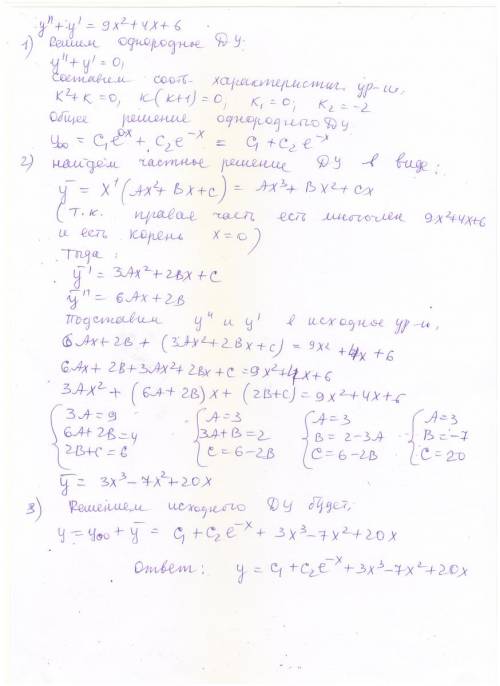 y'' + y' = 9x² + 4x + 6
1) Решим однородное ДУ:
y'' + y' = 0;
Составим соотв. характеристич. ур-ие,
k² + k = 0, k(k+1) = 0, k₁ = 0; k₂ = -2
Общее решение однородного ДУ:
y₀₀ = C₁e^(0x) + C₂e^(-x) = C₁ + C₂e^(-x)
2) найдем частное решение ДУ в виде:
ȳ = x¹(Ax² + Bx + C) = Ax³ + Bx² + Cx
(т.к. правая часть есть многочлен 9x²+4x+6
и есть корень x = 0)
Тогда:
ȳ' = 3Ax² + 2Bx + C
ȳ'' = 6Ax + 2B
Подставим y'' и y' в исходное ур-и,
6Ax + 2B + (3Ax² + 2Bx + C) = 9x² + 4x + 6
6Ax + 2B + 3Ax² + 2Bx + C = 9x² + 4x + 6
3Ax² + (6A + 2B)x + (2B + C) = 9x² + 4x + 6
{ 3A = 9 { A = 3 { A = 3 { A = 3
6A + 2B = 4 3A + B = 2 B = 2 - 3A B = -7
2B + C = 6 C = 6 - 2B C = 6 - 2B C = 20
ȳ = 3x³ - 7x² + 20x
3) Решением исходного ДУ будет,
y = y₀₀ + ȳ = C₁ + C₂e^(-x) + 3x³ - 7x² + 20x
Ответ: y = C₁ + C₂e^(-x) + 3x³ - 7x² + 20x